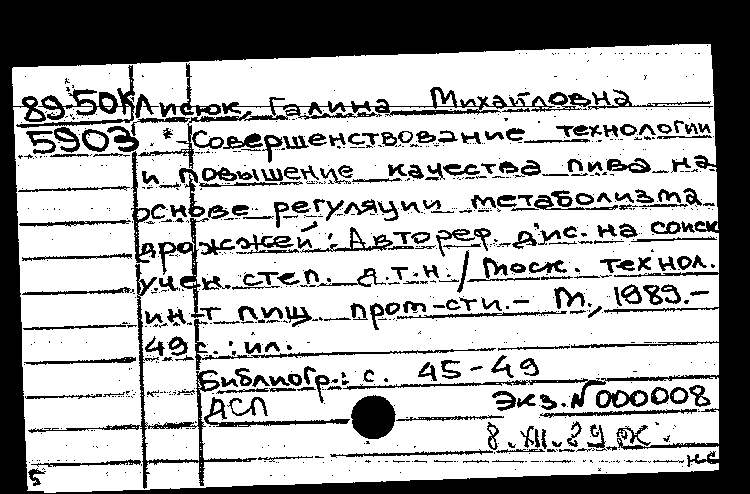 89-50К Лисюк, Галина Михайловна
5903 * Совершенствование технологии
и повышение качества пива на
основе регуляции метаболизма
дрожжей : Автореф. дис. на соиск
учен. степ. д.т.н. / Моск. технол.
ин-т пищ. пром-сти. - М., 1989.-
49 с. : ил.
Библиогр.: с. 45-49
ДСП Экз. № 000008
8.XII.89
5 нс